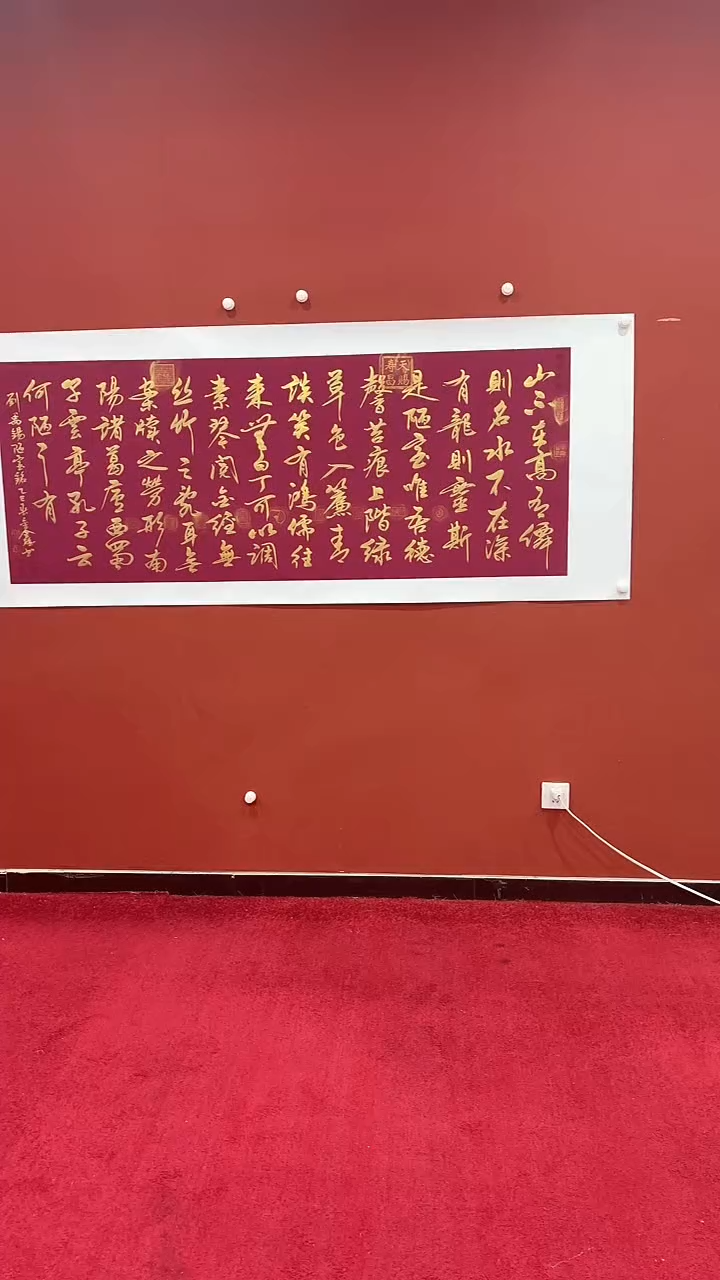 山不在高有僊
則名水不在深
有龍則靈斯
是陋室唯吾德
馨苔痕上階綠
草色入簾青
談笑有鴻儒往
來無白丁可以調
素琴閱金經無
丝竹之亂耳無
案牘之勞形南
陽諸葛廬西蜀
子雲亭孔子云
何陋之有
劉禹錫陋室銘乙巳
天賜壽昌